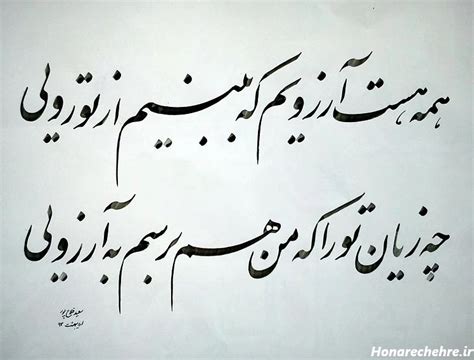 همه هست آرزویم که ببینم از تو رویی
چه زیان تو را که من هم برسم به آرزویی
Honarechehre.ir